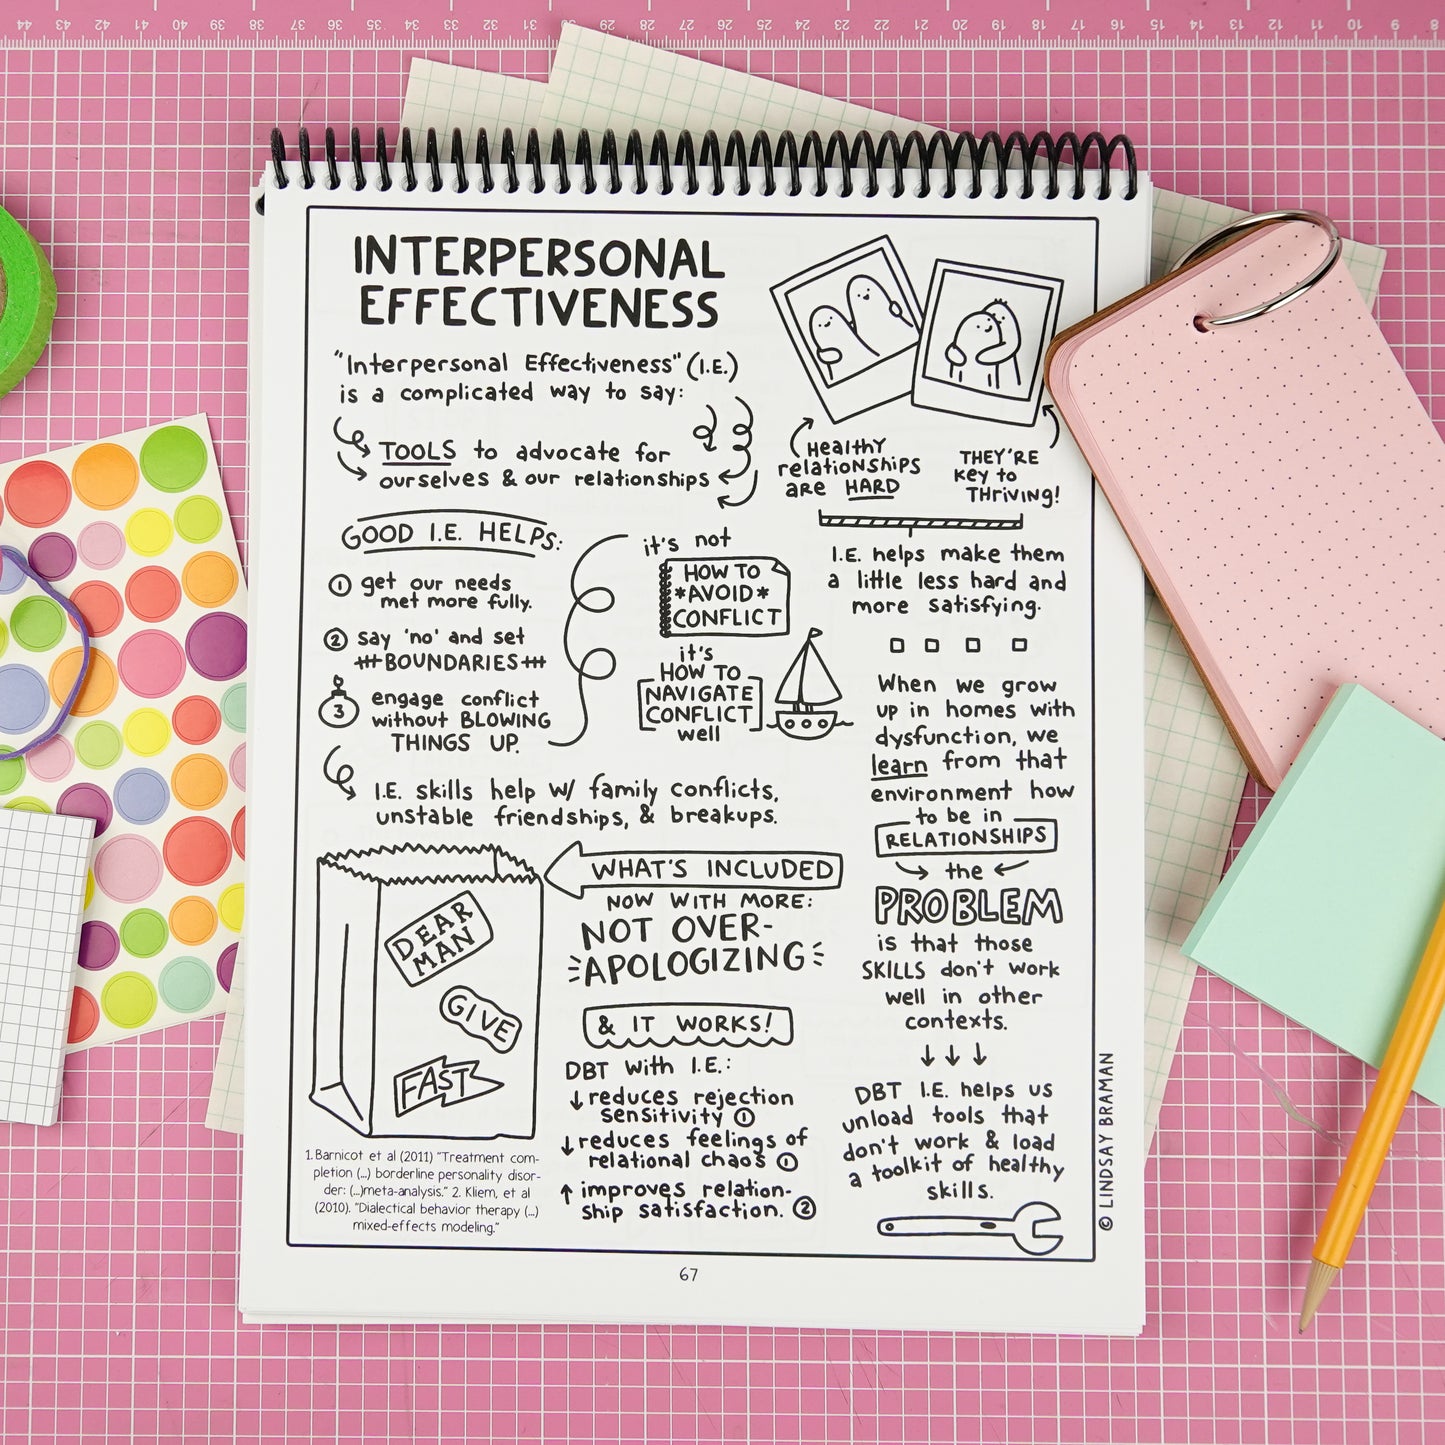 44 43 42 41 40 39 38 37 36 35 34 33 32 31 30 29 28 27 26 25 24 23 22 21 20 19 18 17 16 15 14 13 12 11 10 9 8
INTERPERSONAL
EFFECTIVENESS
"Interpersonal Effectiveness" (I.E.)
is a complicated way to say:
TOOLS to advocate for
ourselves & our relationships
Healthy
relationships
are HARD
THEY'RE
Key to
THRIVING!
I.E. helps make them
a little less hard and
more satisfying.
GOOD I.E. HELPS:
1 get our needs
met more fully.
2 say 'no' and set
BOUNDARIES
3 engage conflict
without BLOWING
THINGS UP.
it's not
HOW TO
*AVOID*
CONFLICT
it's
HOW TO
NAVIGATE
CONFLICT
well
I.E. skills help w/ family conflicts,
unstable friendships, & breakups.
When we grow
up in homes with
dysfunction, we
learn from that
environment how
to be in
RELATIONSHIPS
the
PROBLEM
is that those
SKILLS don't work
well in other
contexts.
DBT I.E. helps us
unload tools that
don't work & load
a toolkit of healthy
skills.
WHAT'S INCLUDED
NOW WITH MORE:
NOT OVER-
APOLOGIZING
DEAR
MAN
GIVE
FAST
& IT WORKS!
DBT with I.E.:
↓ reduces rejection
sensitivity 1
↓ reduces feelings of
relational chaos 1
↑ improves relation-
ship satisfaction. 2
1. Barnicot et al (2011) "Treatment com-
pletion (...) borderline personality disor-
der: (...)meta-analysis." 2. Kliem, et al
(2010). "Dialectical behavior therapy (...)
mixed-effects modeling."
© LINDSAY BRAMAN
67